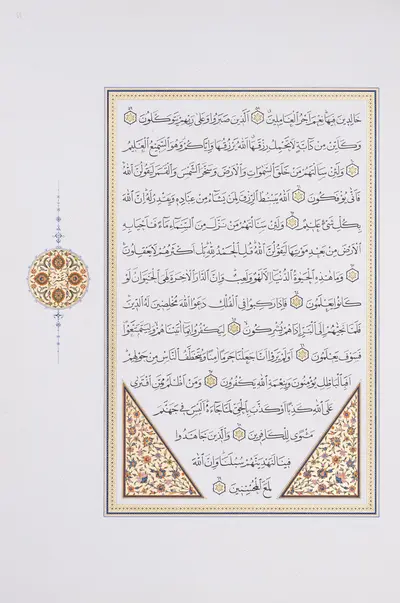 خَالِدِينَ فِيهَا نِعْمَ أَجْرُ الْعَامِلِينَ ۝ الَّذِينَ صَبَرُوا وَعَلَى رَبِّهِمْ يَتَوَكَّلُونَ ۝
وَكَأَيِّنْ مِنْ دَابَّةٍ لَا تَحْمِلُ رِزْقَهَا اللَّهُ يَرْزُقُهَا وَإِيَّاكُمْ وَهُوَ السَّمِيعُ الْعَلِيمُ
۝ وَلَئِنْ سَأَلْتَهُمْ مَنْ خَلَقَ السَّمٰوَاتِ وَالْأَرْضَ وَسَخَّرَ الشَّمْسَ وَالْقَمَرَ لَيَقُولُنَّ اللَّهُ
فَأَنَّى يُؤْفَكُونَ ۝ اللَّهُ يَبْسُطُ الرِّزْقَ لِمَنْ يَشَاءُ مِنْ عِبَادِهِ وَيَقْدِرُ لَهُ إِنَّ اللَّهَ
بِكُلِّ شَيْءٍ عَلِيمٌ ۝ وَلَئِنْ سَأَلْتَهُمْ مَنْ نَزَّلَ مِنَ السَّمَاءِ مَاءً فَأَحْيَا بِهِ
الْأَرْضَ مِنْ بَعْدِ مَوْتِهَا لَيَقُولُنَّ اللَّهُ قُلِ الْحَمْدُ لِلَّهِ بَلْ أَكْثَرُهُمْ لَا يَعْقِلُونَ
۝ وَمَا هٰذِهِ الْحَيٰوةُ الدُّنْيَا إِلَّا لَهْوٌ وَلَعِبٌ وَإِنَّ الدَّارَ الْآخِرَةَ لَهِيَ الْحَيَوَانُ لَوْ
كَانُوا يَعْلَمُونَ ۝ فَإِذَا رَكِبُوا فِي الْفُلْكِ دَعَوُا اللَّهَ مُخْلِصِينَ لَهُ الدِّينَ
فَلَمَّا نَجّٰيهُمْ إِلَى الْبَرِّ إِذَا هُمْ يُشْرِكُونَ ۝ لِيَكْفُرُوا بِمَا آتَيْنَاهُمْ وَلِيَتَمَتَّعُوا
فَسَوْفَ يَعْلَمُونَ ۝ أَوَلَمْ يَرَوْا أَنَّا جَعَلْنَا حَرَمًا آمِنًا وَيُتَخَطَّفُ النَّاسُ مِنْ حَوْلِهِمْ
أَفَبِالْبَاطِلِ يُؤْمِنُونَ وَبِنِعْمَةِ اللَّهِ يَكْفُرُونَ ۝ وَمَنْ أَظْلَمُ مِمَّنِ افْتَرَى
عَلَى اللَّهِ كَذِبًا أَوْ كَذَّبَ بِالْحَقِّ لَمَّا جَاءَهُ أَلَيْسَ فِي جَهَنَّمَ
مَثْوًى لِلْكَافِرِينَ ۝ وَالَّذِينَ جَاهَدُوا
فِينَا لَنَهْدِيَنَّهُمْ سُبُلَنَا وَإِنَّ اللَّهَ
لَمَعَ الْمُحْسِنِينَ ۝